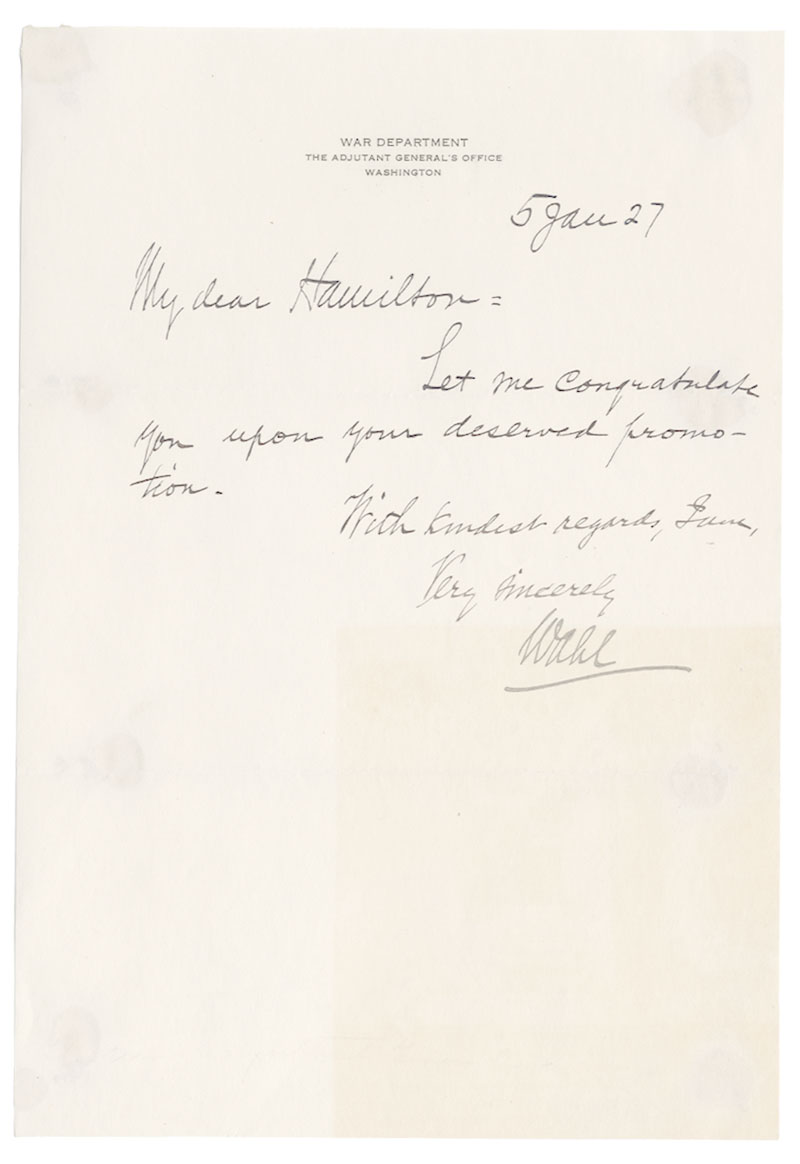 WAR DEPARTMENT
THE ADJUTANT GENERAL'S OFFICE
WASHINGTON
5 Jan 27
My dear Hamilton =
Let me congratulate
you upon your deserved promo-
tion.
With kindest regards, I am,
Very sincerely
Wahl